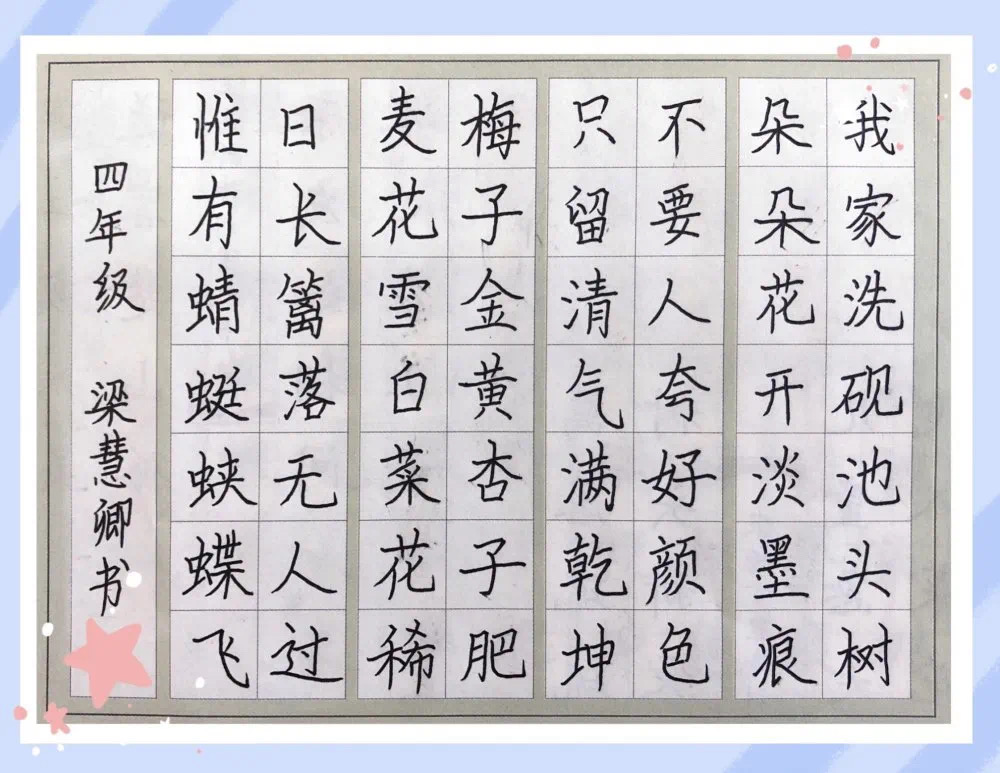 我家洗砚池头树
朵朵花开淡墨痕
不要人夸好颜色
只留清气满乾坤
梅子金黄杏子肥
麦花雪白菜花稀
日长篱落无人过
惟有蜻蜓蛱蝶飞
四年级 梁慧卿书